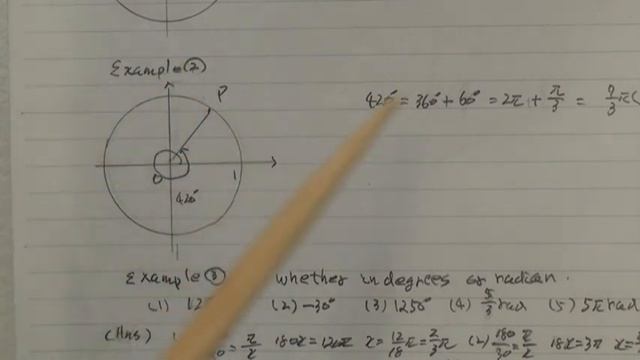 Example②
P
420° = 360° + 60° = 2π + π/3 = 7/3 π(
O
1
420°
Example③ whether in degrees or radian.
(1) 12 (2) -30° (3) 1250° (4) 5/3 rad (5) 5π rad
(Ans) = π/x 180x = 120π x = 12/18 π = 2/3 π (2) 180/30 = π/x 18x = 3π x =